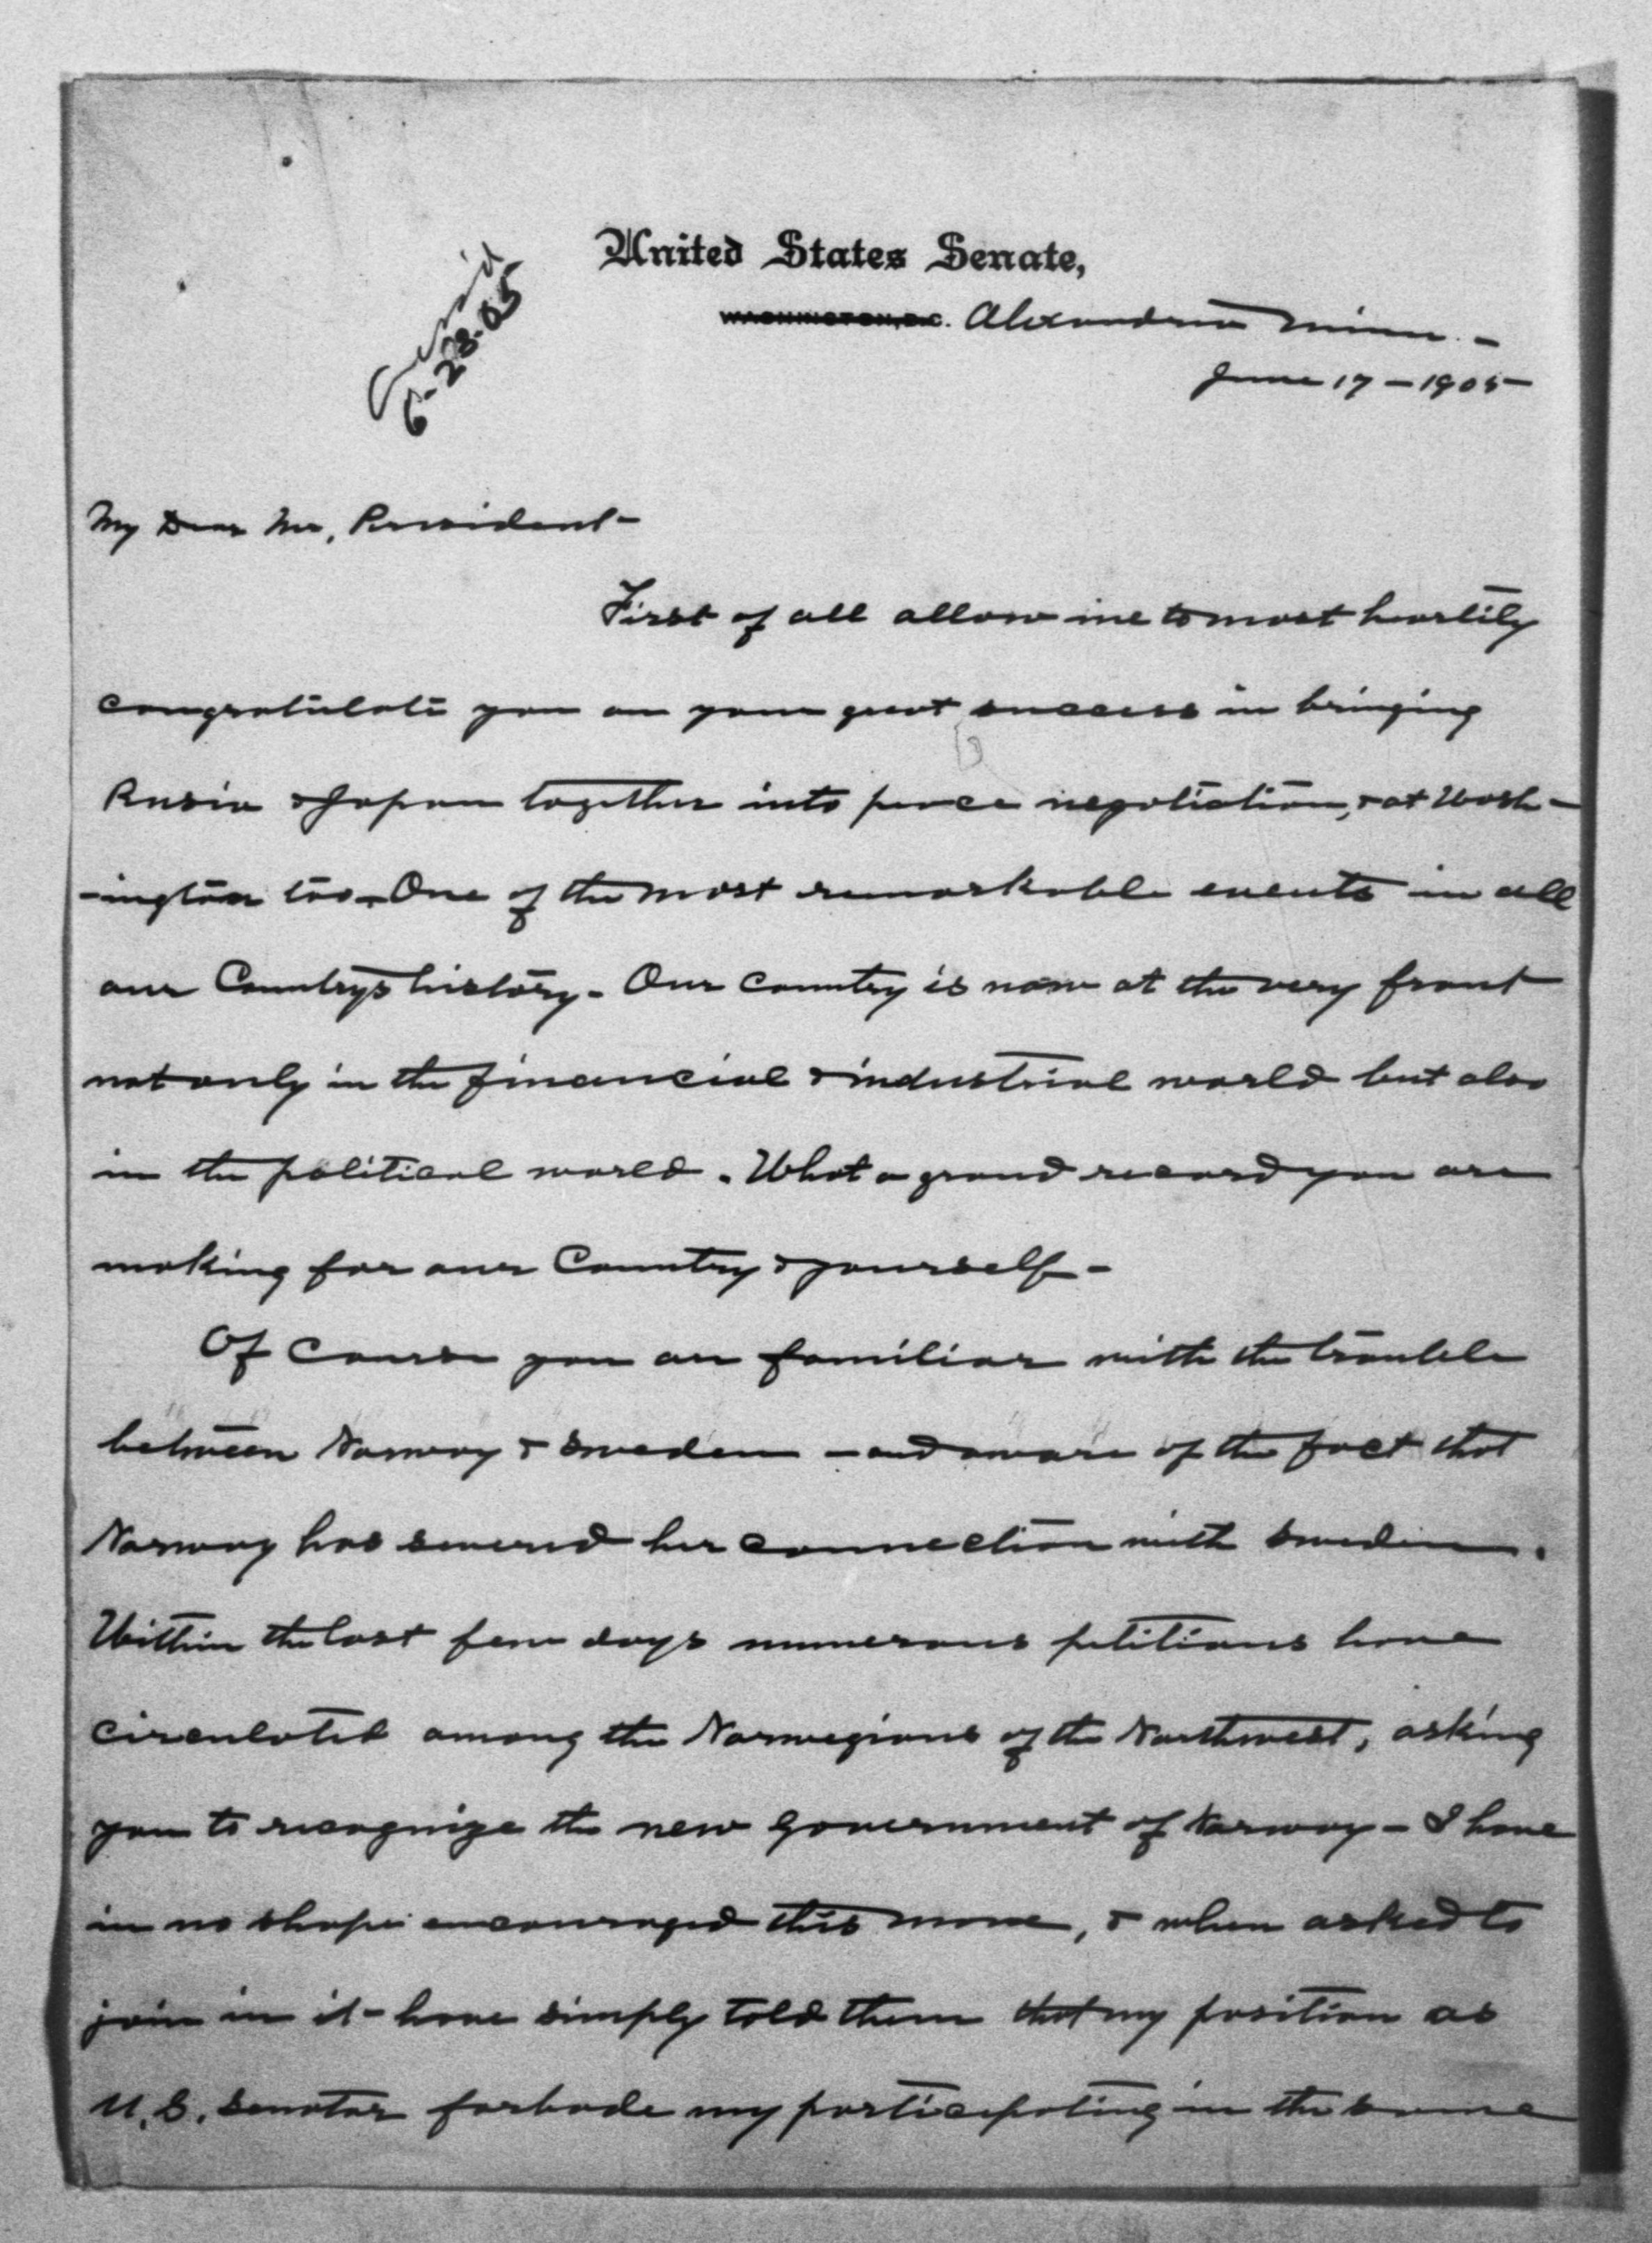 United States Senate,
Ack'd
6-23-05
WASHINGTON, D.C. Alexandria Minn. -
June 17 - 1905 -
My Dear Mr, President -
First of all allow me to most heartily
congratulate you on your great success in bringing
Rusia & Japan together into peace negotiation, & at Wash-
-ington too - One of the most remarkable events in all
our Countrys history - Our country is now at the very front
not only in the financial & industrial world but also
in the political world. What a grand record you are
making for our Country & yourself -
Of course you are familiar with the trouble
between Norway & Sweden - and aware of the fact that
Norway has severed her connection with Sweden.
Within the last few days numerous petitions have
circulated among the Norwegians of the Northwest, asking
you to recognize the new government of Norway - I have
in no shape encouraged this move, & when asked to
join in it - have simply told them that my position as
U.S. Senator forbade my participating in the same